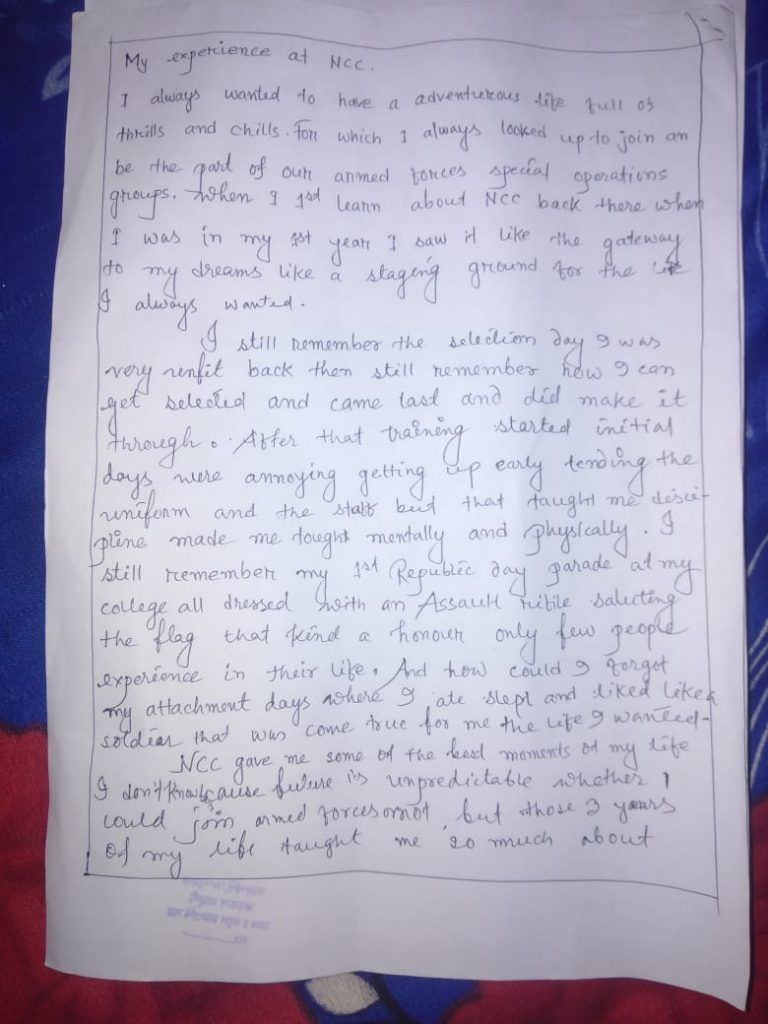 My experience at NCC.
I always wanted to have a adventurous life full of
thrills and chills. For which I always looked up to join an
be the part of our armed forces special operations
groups. When I 1st learn about NCC back there when
I was in my 1st year I saw it like the gateway
to my dreams like a staging ground for the life
I always wanted.
I still remember the selection day I was
very unfit back then still remember how I can
get selected and came last and did make it
through. After that training started initial
days were annoying getting up early tending the
uniform and the staff but that taught me disci-
pline made me tought mentally and physically. I
still remember my 1st Republic day parade at my
college all dressed with an Assault rifile saluting
the flag that kind a honour only few people
experience in their life. And how could I forgot
my attachment days where I ate slept and liked like
soldier that was come true for me the life I wanted-
NCC gave me some of the best moments of my life
I don't know cause future is unpredictable whether I
could join armed forces or not, but those 3 years
of my life taught me so much about